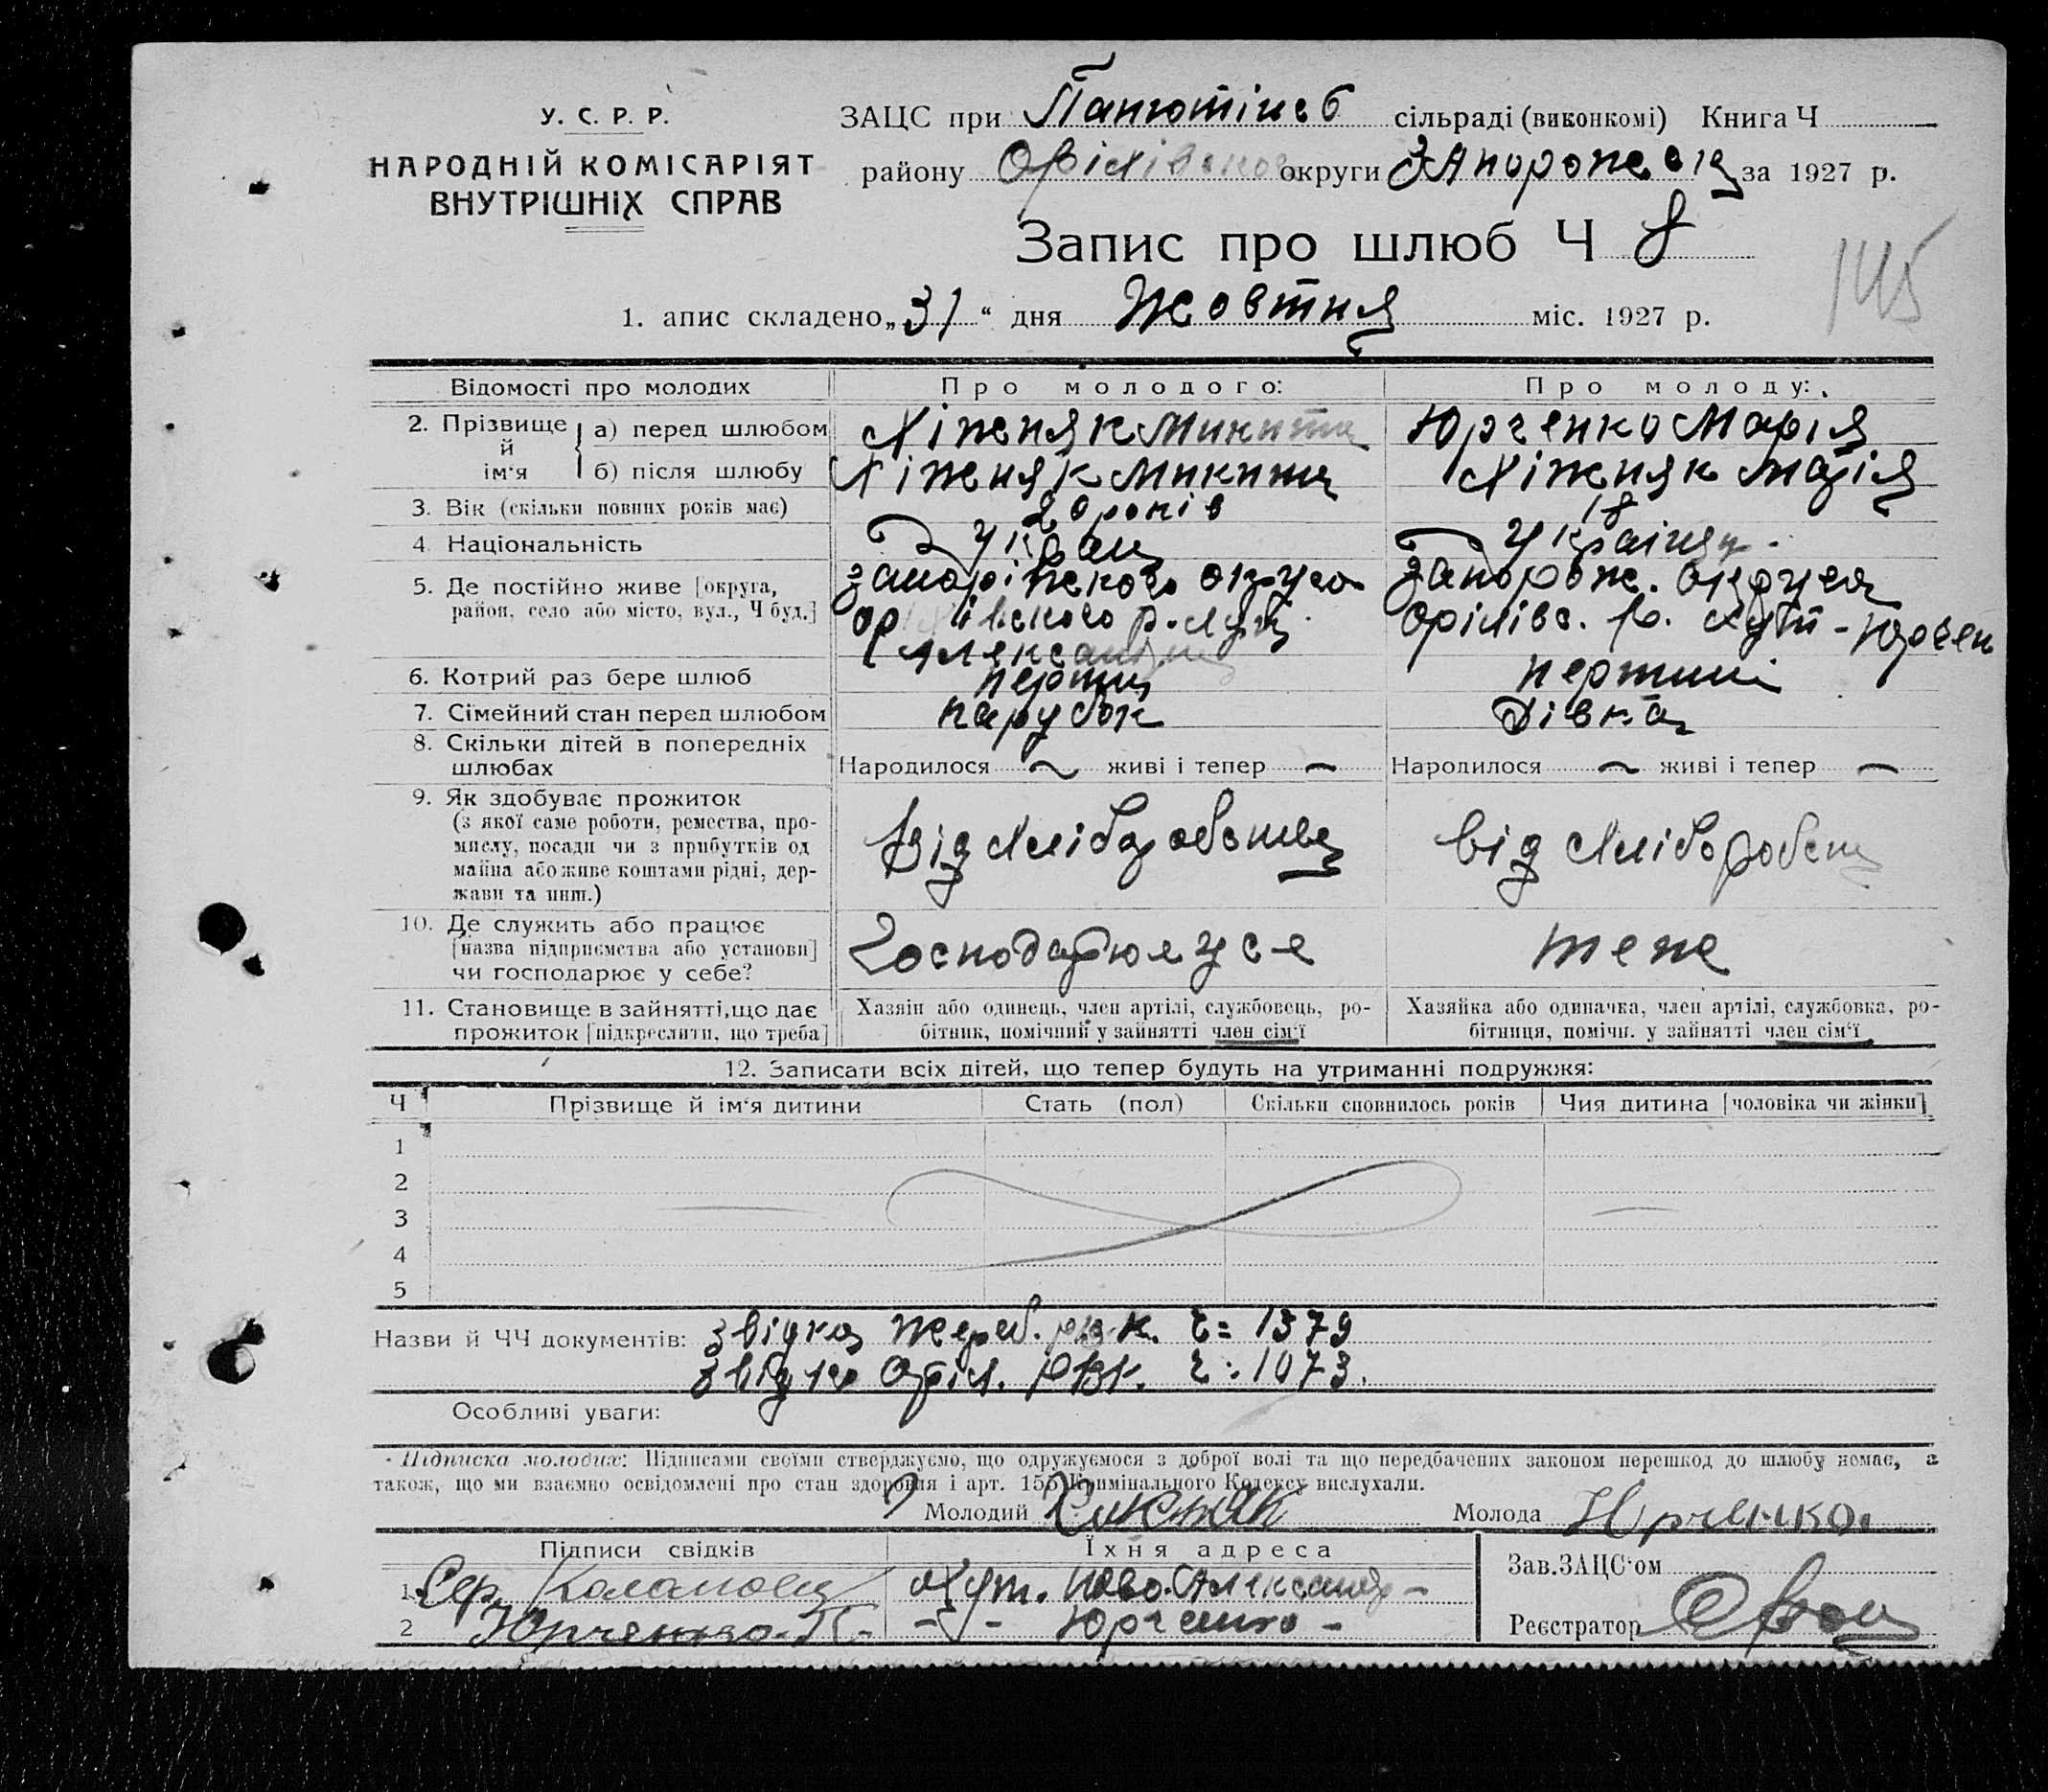 У. С. Р. Р.
НАРОДНІЙ КОМІСАРІЯТ
ВНУТРІШНІХ СПРАВ
ЗАЦС при Панютінсб сільраді (виконкомі) Книга Ч
району округи Запорожська за 1927 р.
Запис про шлюб Ч 8
145
1. апис складено „31“ дня Жовтня міс. 1927 р.
Відомості про молодих Про молодого: Про молоду:
2. Прізвище й ім'я
а) перед шлюбом Хіжняк Микита Юрченко Марія
б) після шлюбу Хіжняк Микита Хіжняк Марія
3. Вік (скільки повних років має) 20 років 18
4 Національність Украін
5. Де постійно живе [округа,
район, село або місто, вул., Ч буд.]
округа
Запорож. округа
р. хут.
Оріхівс. р. хут - Юрчен
6. Котрий раз бере шлюб перши
7. Сімейний стан перед шлюбом парубок Дівка
8. Скільки дітей в попередніх
шлюбах
Народилося ~ живі і тепер — Народилося ~ живі і тепер —
9. Як здобуває прожиток
(з якої саме роботи, ремества, про-
мислу, посади чи з прибутків од
майна або живе коштами рідні, дер-
жави та инш.)
Від хліборобства від хліборобств
10. Де служить або працює
[назва підприємства або установи]
чи господарює у себе?
Господарює у се теж
11. Становище в зайнятті, що дає
прожиток [підкреслити, що треба]
Хазяін або одинець, член артілі, службовець, ро-
бітник, помічний у зайнятті член сім'ї
Хазяйка або одиначка, член артілі, службовка, ро-
бітниця, помічн. у зайнятті член сім'ї
12. Записати всіх дітей, що тепер будуть на утриманні подружжя:
Ч Прізвище й ім'я дитини Стать (пол) Скільки сповнилось років Чия дитина [чоловіка чи жінки]
1
2
3
4
5
Назви й ЧЧ документів: Звідка Жереб. р.в.к. ч= 1379
Звідка Оріх. РВК. ч: 1073.
Особливі уваги:
Підписка молодих: Підписами своїми стверджуємо, що одружуємося з доброї волі та що передбачених законом перешкод до шлюбу немає, а
також, що ми взаємно освідомлені про стан здоровля і арт. 155 Кримінального Кодексу вислухали.
Молодий Молода Юрченко.
Підписи свідків Їхня адреса Зав. ЗАЦС'ом
1 Сер. хут. Ново. Александр-
2 Юрченко. -"- Юрченко -
Реєстратор